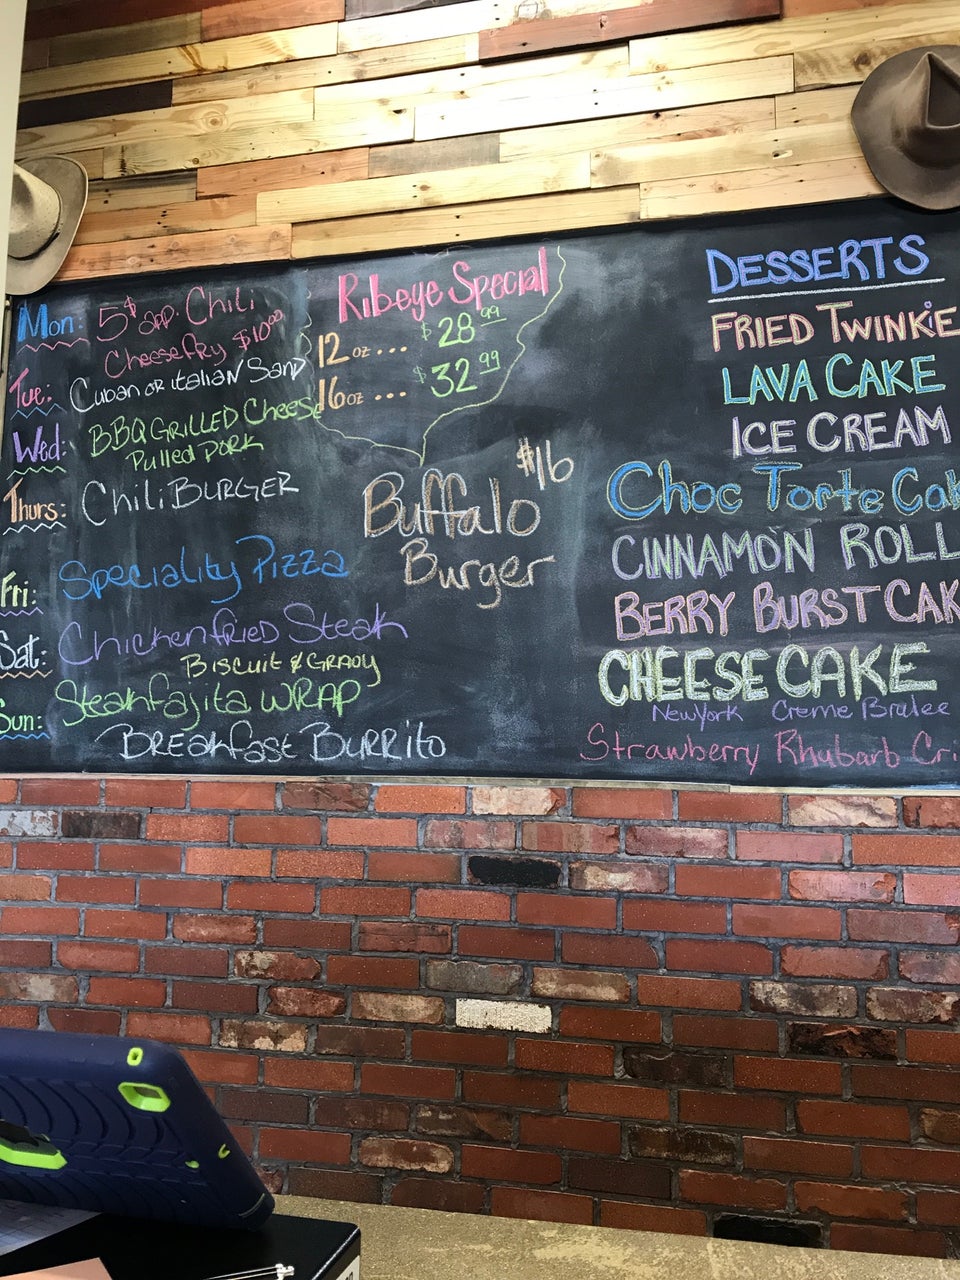 Mon: 5$ app. Chili
Cheese fry $10.00
Tue: Cuban or Italian Sand
Wed: BBQ GRILLED Cheese
Pulled PORK
Thurs: Chili BURGER
Fri: Speciality Pizza
Sat: Chicken fried Steak
Biscuit & GRAVY
Sun: Steak fajita WRAP
BREAKfast BURRito
Ribeye Special
12 oz ... $28.99
16 oz ... $32.99
$16
Buffalo
Burger
DESSERTS
FRIED TWINKiE
LAVA CAKE
ICE CREAM
Choc Torte Cak
CINNAMON ROLL
BERRY BURST CAK
CHEESE CAKE
New York Creme Brulee
Strawberry Rhubarb Cri